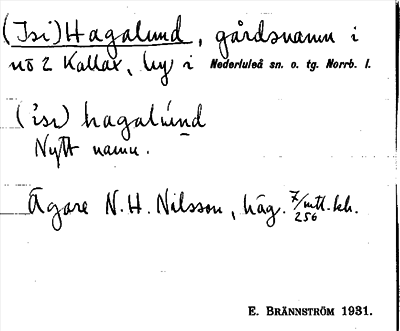 (Isi) Hagalund, gårdsnamn i
nō 2 Kallax, by i Nederluleå sn. o. tg. Norrb. l.
(ìsi) hagalúnd
Nytt namn.
Ägare N. H. Nilsson, häg. 7/256 mtl. kh.
E. BRÄNNSTRÖM 1931.